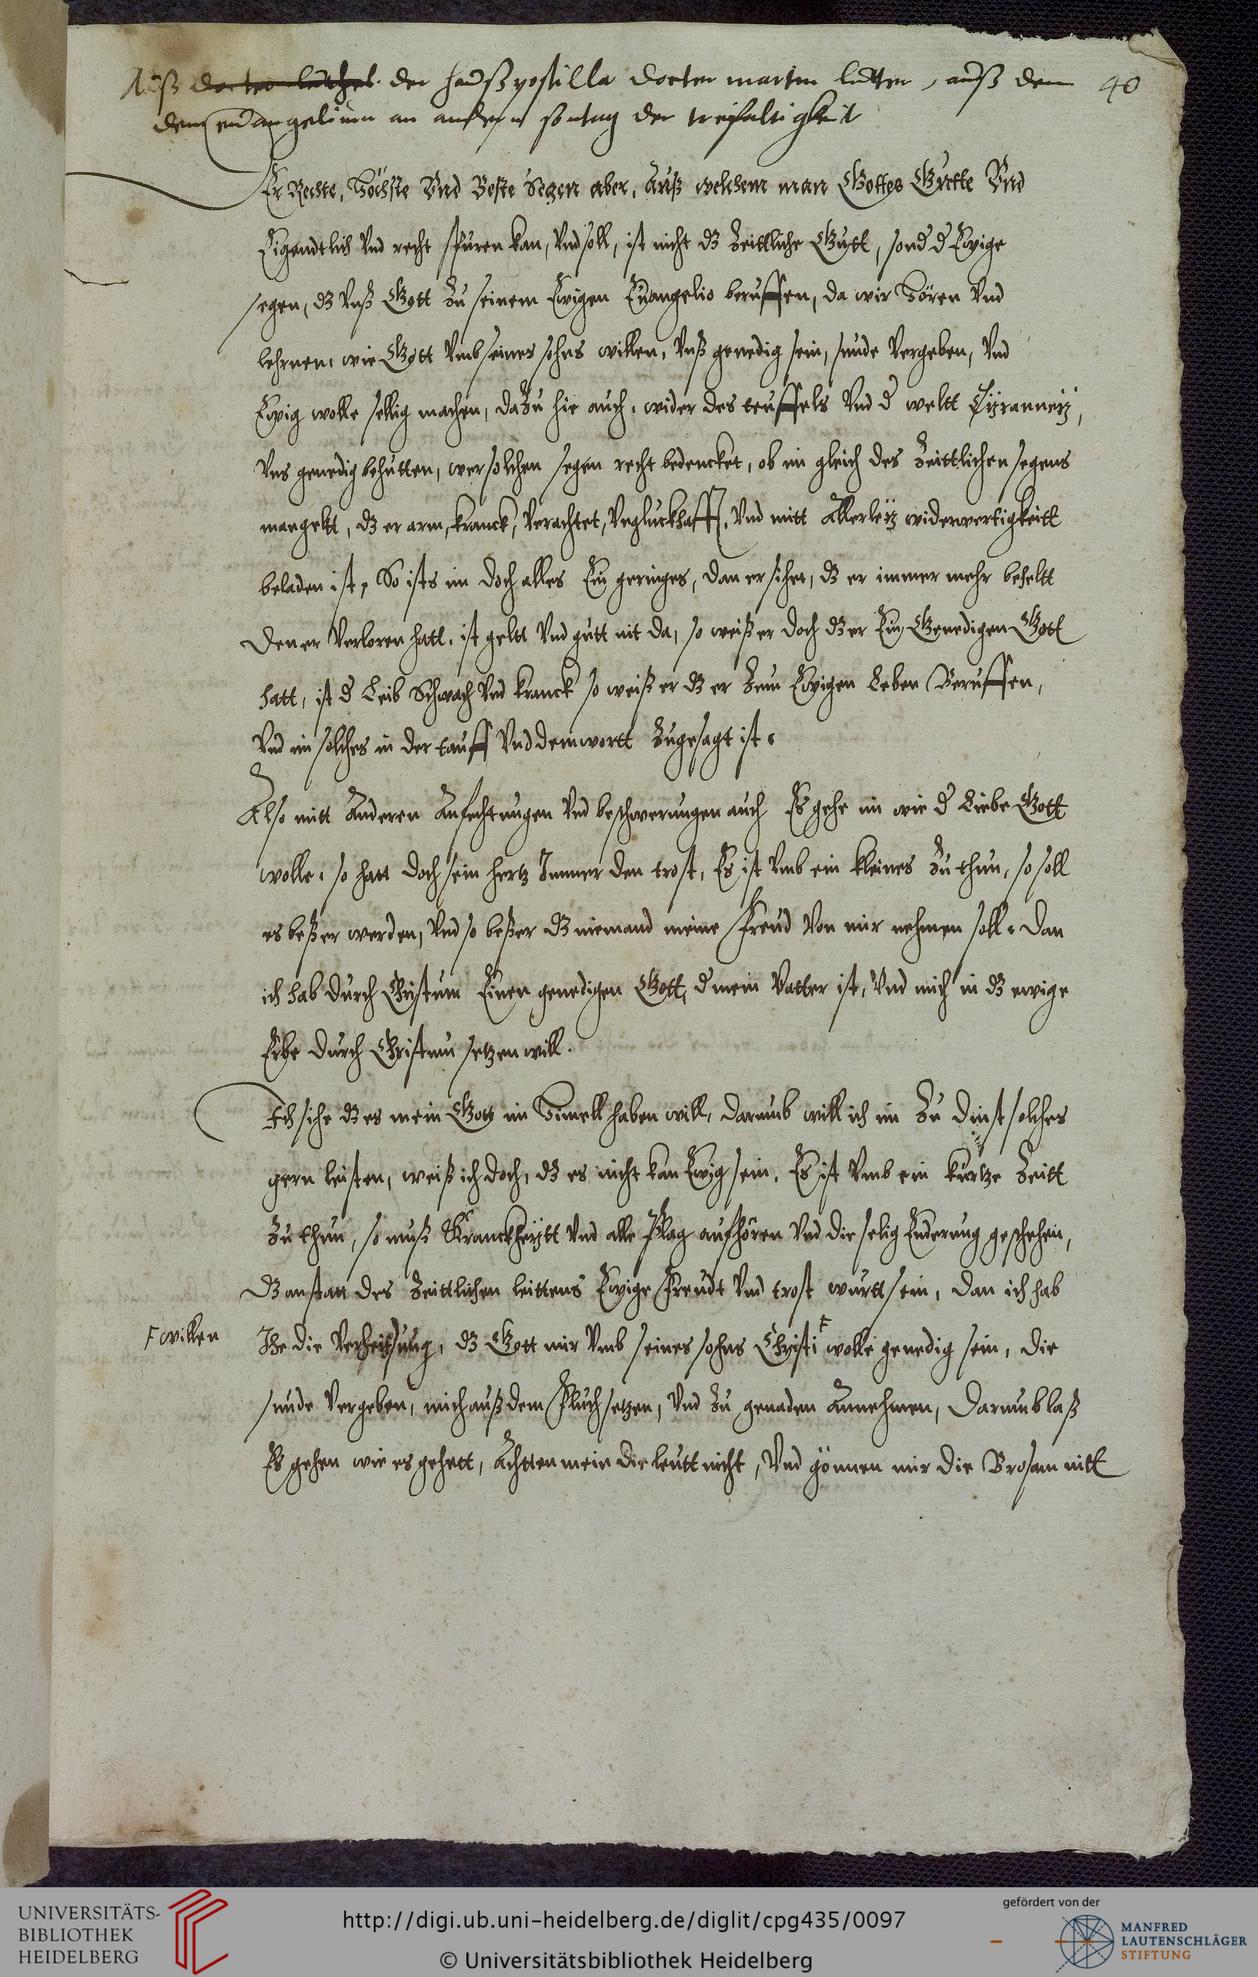 Auß docter luther der haußpostilla docter martin lutter, auß dem 40
dem euangelium an andern sontag der treifaltigkeit
Er Rechte, Höchste Vnd Beste Segen aber, Auß welchem man Gottes Guette Vnd
Eigendtlich Vnd recht spuren kan, Vnd soll, ist nicht dz Zeittliche Gutt, sond d Ewige
segen, dz Vnß Gott Zu seinem Ewigen Euangelio beruffen, da wir Hören Vnd
lehrnen, wie Gott Vmb seines sohns willen, Vnß genedig sein, sunde Vergeben, Vnd
Ewig wolle sellig machen, daZu hie auch, wider des teuffels Vnd d weltt Tÿranneÿ,
Vns genedig behutten, wer solchen segen recht bedencket, ob im gleich des Zeittlichen segens
mangeltt, dz er arm, kranck, Verachtet, Vngluckhafft, Vnd mitt Allerleÿ widerwertigkeitt
beladen ist, So ists im doch alles Ein geringes, dan er sihet, dz er immer mehr beheltt
Den er Verloren hatt, ist geltt Vnd gutt nit da, so weiß er doch dz er Ein Genedigen Gott
hatt, ist d Leib Schwach Vnd kranck so weiß er dz er Zum Ewigen Leben Beruffen,
Vnd im solches in der tauff Vnd dem wortt Zugesagt ist.
Also mitt Anderen Anfechtungen Vnd beschwerungen auch Es gehe im wie d Liebe Gott
wolle, so hatt doch sein hertz Immer den trost, Es ist Vmb ein kleines Zu thun, so soll
es beßer werden, Vnd so beßer dz niemand meine Freud Von mir nehmen soll, Dan
ich hab durch Christum Einen genedigen Gott, d mein Vatter ist, Vnd mich in dz ewige
Erbe durch Christum setzen will.
Ich sihe dz es mein Gott im Himell haben will, darumb will ich im Zu dinst solches
gern leisten, weiß ich doch, dz es nicht kan Ewig sein, Es ist Vmb ein kurtze Zeitt
Zu thun, so muß Kranckheÿtt Vnd alle Plag aufhören Vnd die selig Enderung geschehen,
Dz anstatt des Zeittlichen leittens Ewige Freudt Vnd trost wurtt sein, dan ich hab
F willen
Ihe die Verheissung, dz Gott mir Vmb seines sohns Christi F wolle genedig sein, die
sunde Vergeben, mich auß dem Fluch setzen, Vnd Zu genaden Annehmen, Darumb laß
Es gehen wie es gehett, Achtten mein die leutt nicht, Vnd gönnen mir die Brosam nitt
UNIVERSITÄTS-
BIBLIOTHEK
HEIDELBERG
http://digi.ub.uni-heidelberg.de/diglit/cpg435/0097
© Universitätsbibliothek Heidelberg
gefördert von der
MANFRED
LAUTENSCHLÄGER
STIFTUNG